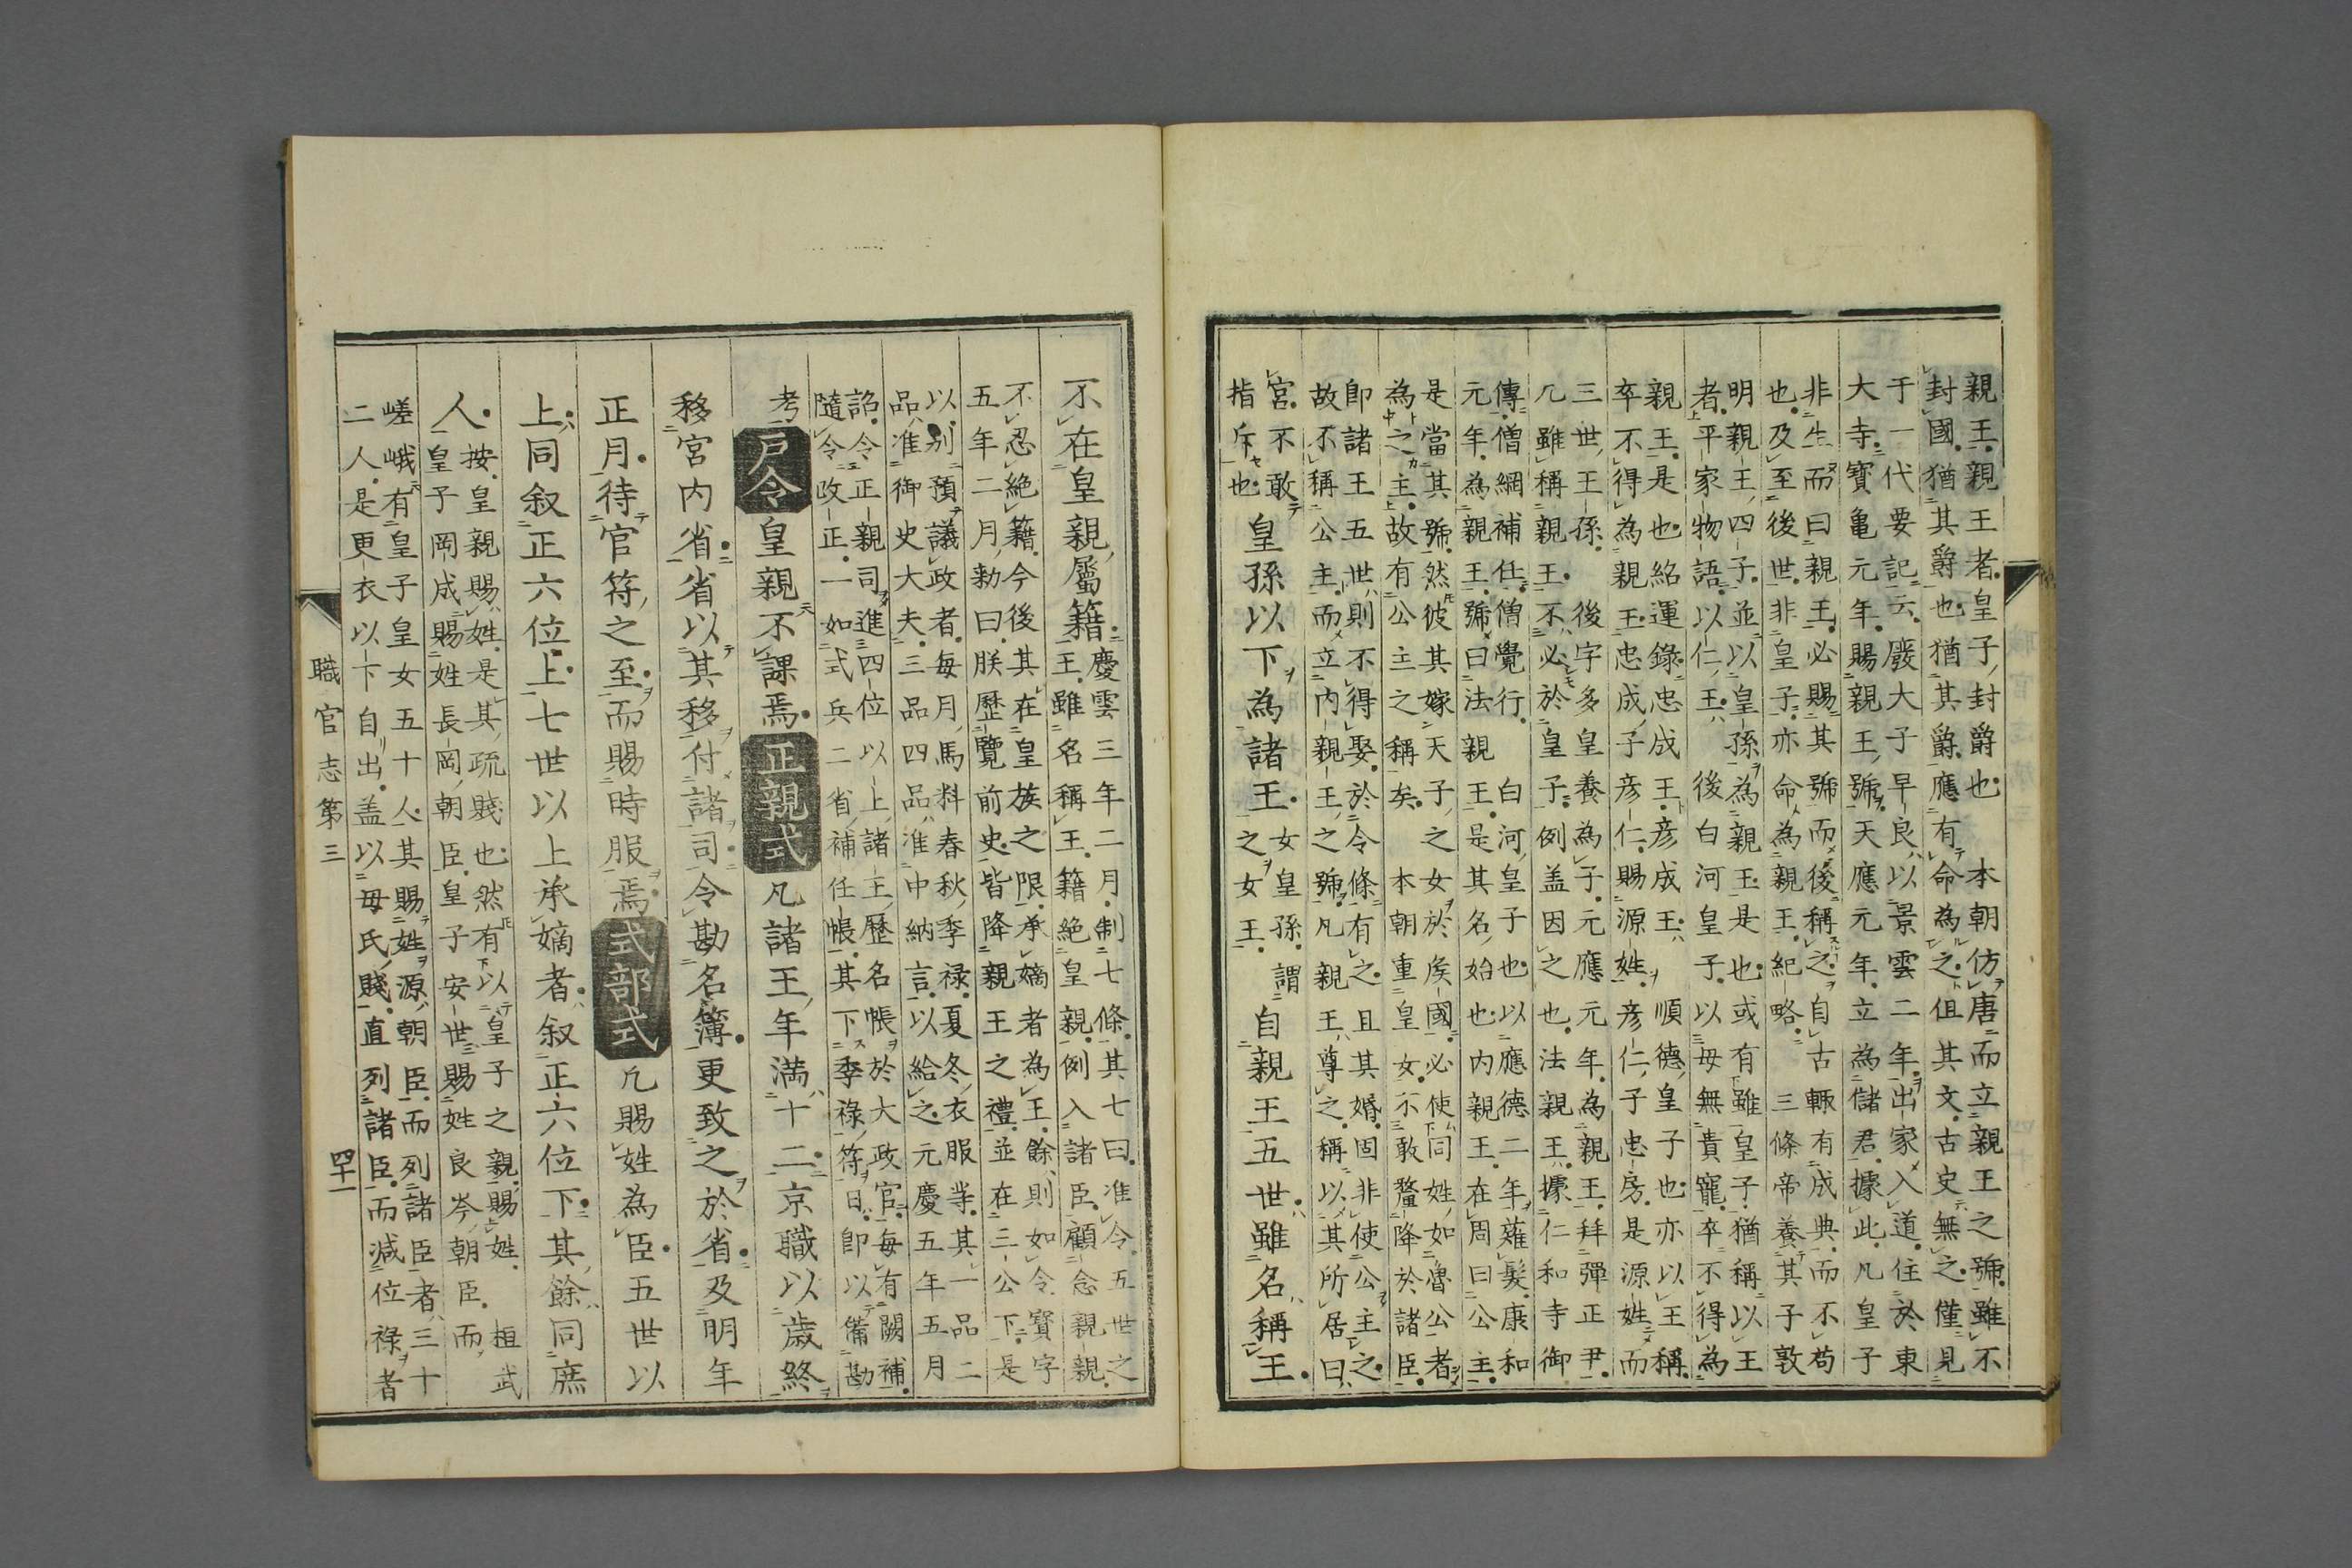 親王親王者皇子封爵也 本朝仿唐而立親王之號雖不
封國猶其爵也猶其爵應有命為之但其文古史無之僅見
于一代要記云廢大子早良以景雲二年出家入道住於東
大寺寶亀元年賜親王號天應元年立為儲君據此凡皇子
非生而曰親王必賜其號而後稱之自古輙有成典而不苟
也及至後世非皇子亦命為親王紀略 三條帝養其子敦
明親王四子並以皇孫為親王是也或有雖皇子猶稱以王
者平家物語以仁王後白河皇子以母無貴寵卒不得為
親王是也紹運錄忠成王彦成王順德皇子也亦以王稱
卒不得為親王忠成子彦仁賜源姓彦仁子忠房是源姓而
三世王孫 後字多皇養為子元應元年為親王拜彈正尹
凢雖稱親王不必於皇子例盖因之也法親王據仁和寺御
傳僧綱補任僧覺行 白河皇子也以應德二年薙髮康和
元年為親王號曰法親王是其名始也内親王在周曰公主
是當其號然彼其嫁天子之女於侯國必使同姓如魯公者
為之主故有公主之稱矣 本朝重皇女不敢釐降於諸臣
即諸王五世則不得娶於令條有之且其婚固非使公主之
故不稱公主而立内親王之號凡親王尊之稱以其所居曰
宮不敢
指斥也
皇孫以下為諸王
女皇孫
之女王
謂自親王五世雖名稱王
不在皇親屬籍
慶雲三年二月制七條其七曰准令五世之
王雖名稱王籍絕皇親例入諸臣顧念親親
不忍絕籍今後其在皇族之限承嫡者為王餘則如令寳字
五年二月勅曰朕歷覽前史皆降親王之禮並在三公下是
以別預議政者每月馬料春秋季禄夏冬衣服䒭其一品二
品准御史大夫三品四品准中納言以給之元慶五年五月
詔令正親司進四位以上諸王歷名帳於大政官每有闕補
隨令政正一如式兵二省補任帳其下季禄符日即以備勘
考
戸令
皇親不課焉
正親式
凡諸王年満十二京職以歲終
移宮内省省以其移付諸司令勘名簿更致之於省及明年
正月待官符之至而賜時服焉
式部式
凡賜姓為臣五世以
上同叙正六位上七世以上承嫡者叙正六位下其餘同庶
人
按皇親賜姓是其疏賤也然有以皇子之親賜姓 桓武
皇子岡成賜姓長岡朝臣皇子安世賜姓良岑朝臣而
嵯峨有皇子皇女五十人其賜姓源朝臣而列諸臣者三十
二人是更衣以下自出盖以母氏賤直列諸臣而減位禄者
職官志第三
四十一